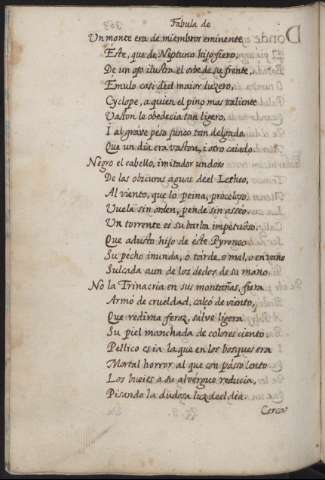 Fabula de
Un monte era de miembros eminente
Este, que de Neptuno hijo fiero,
De un ojo ilustra el orbe de su frente,
Emulo casi del maior luzero,
Cyclope, a quien el pino mas valiente
Vaston le obedecia tan ligero,
I al grave peso junco tan delgado
Que un dia era vaston, i otro caiado.
Negro el cabello, imitador undoso
De las obscuras aguas de el Letheo,
Al viento, que lo peina, proceloso
Vuela sin orden, pende sin asseo.
Un torrente es su barba impetuoso
Que adusto hijo de este Pyreneo
Su pecho inunda, o tarde, o mal, o en vano
Sulcada aun de los dedos de su mano.
No la Trinacria en sus montañas, fiera
Armó de crueldad, calçó de viento,
Que redima feroz, salve ligera
Su piel manchada de colores ciento
Pellico es ia la que en los bosques era
Mortal horror al que con passo lento
Los bueies a su alvergue reducia,
Pisando la dudosa luz de el dia.
Cerca